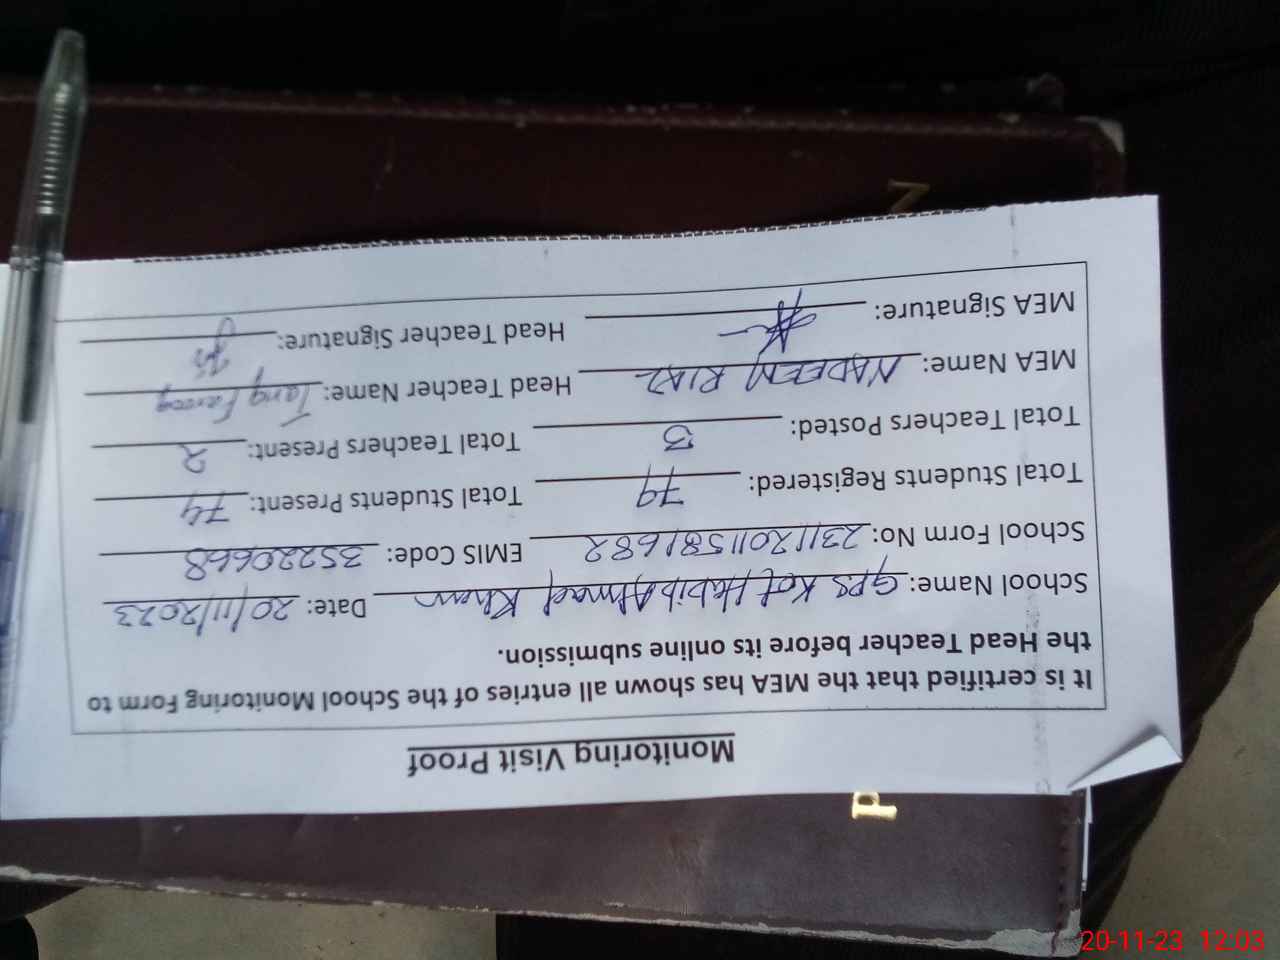 Monitoring Visit Proof
It is certified that the MEA has shown all entries of the School Monitoring Form to
the Head Teacher before its online submission.
School Name: GPS Kot Habib Ahmad Khan Date: 20/11/2023
School Form No: 23112011581682 EMIS Code: 35220668
Total Students Registered: 79 Total Students Present: 74
Total Teachers Posted: 3 Total Teachers Present: 2
MEA Name: NADEEM RIAZ Head Teacher Name: Tariq Farooq
MEA Signature: Head Teacher Signature:
20-11-23 12:03